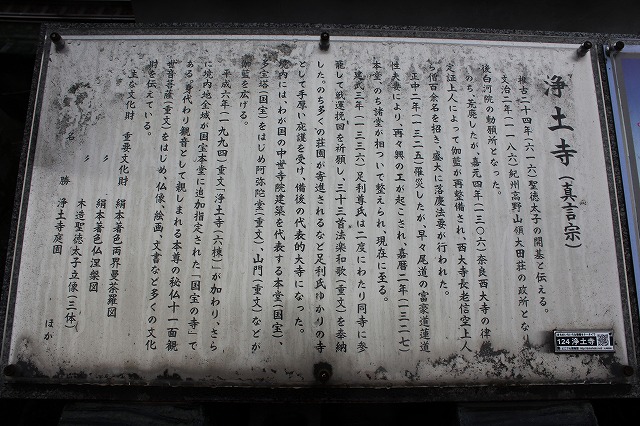 浄土寺（真言宗）
推古二十四年（六一六）聖徳太子の開基と伝える。
文治二年（一一八六）紀州高野山領太田荘の政所となり
後白河院の勅願所となった。
のち、荒廃したが、嘉元四年（一三〇六）奈良西大寺の律僧
定証上人によって伽藍が再整備され、西大寺長老信空上人
ら僧百余名を招き、盛大に落慶法要が行われた。
正中二年（一三二五）罹災したが、早々尾道の富豪道蓮道
性夫妻により、再々興の工が起こされ、嘉暦二年（一三二七）
本堂、のち諸堂が相ついで整えられ、現在に至る。
建武三年（一三三六）足利尊氏は二度にわたり同寺に参
籠して戦運挽回を祈願し、三十三首法楽和歌（重文）を奉納
した。のち多くの荘園が寄進されるなど足利氏ゆかりの寺
として手厚い庇護を受け、備後の代表的大寺になった。
境内には、わが国の中世寺院建築を代表する本堂（国宝）、
多宝塔（国宝）をはじめ阿弥陀堂（重文）、山門（重文）などが
伽藍を広げる。
平成六年（一九九四）重文「浄土寺（六棟）」が加わり、さら
に境内地全域が国宝本堂に追加指定された「国宝の寺」で
ある。身代わり観音として親しまれる本尊の秘仏十一面観
世音菩薩（重文）をはじめ、仏像、絵画、文書など多くの文化
財を伝えている。
主な文化財 重要文化財 絹本着色両界曼荼羅図
〃 絹本着色仏涅槃図
〃 木造聖徳太子立像（三体）
名 勝 浄土寺庭園 ほか
124 浄土寺